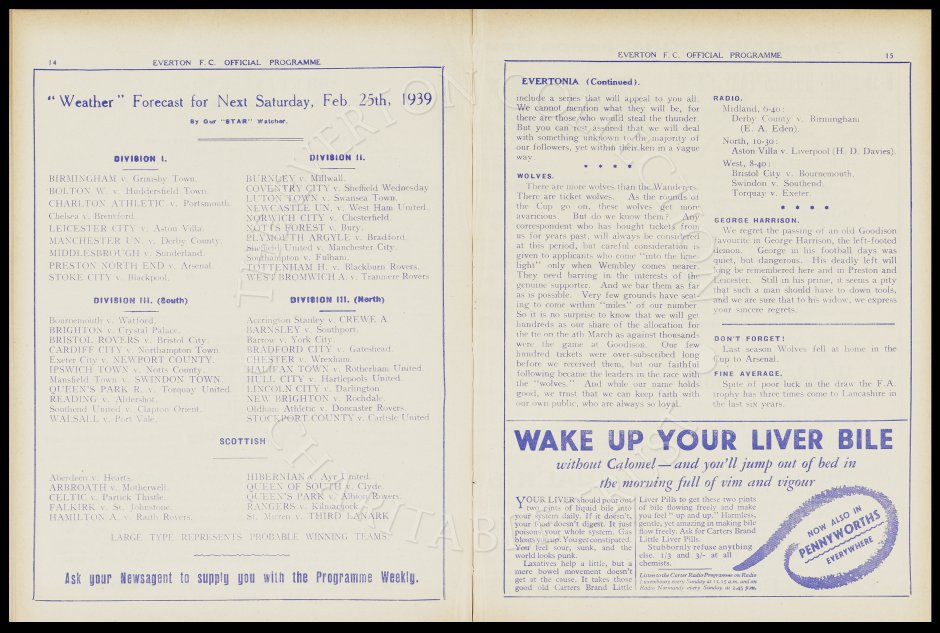 14
EVERTON F. C. OFFICIAL PROGRAMME
"Weather" Forecast for Next Saturday, Feb. 25th, 1939
By Our "STAR" Watcher.
DIVISION I.
BIRMINGHAM v. Grimsby Town.
BOLTON W. v. Huddersfield Town.
CHARLTON ATHLETIC v. Portsmouth.
Chelsea v. Brentford.
LEICESTER CITY v. Aston Villa.
MANCHESTER UN. v. Derby County.
MIDDLESBROUGH v. Sunderland.
PRESTON NORTH END v. Arsenal.
STOKE CITY v. Blackpool.
DIVISION II.
BURNLEY v. Millwall.
COVENTRY CITY v. Sheffield Wednesday
LUTON TOWN v. Swansea Town.
NEWCASTLE UN. v. West Ham United.
NORWICH CITY v. Chesterfield.
NOTTS FOREST v. Bury.
PLYMOUTH ARGYLE v. Bradford.
Sheffield United v. Manchester City.
Southampton v. Fulham.
TOTTENHAM H. v. Blackburn Rovers.
WEST BROMWICH A. v. Tranmere Rovers
DIVISION III. (South)
Bournemouth v. Watford.
BRIGHTON v. Crystal Palace.
BRISTOL ROVERS v. Bristol City.
CARDIFF CITY v. Northampton Town.
Exeter City v. NEWPORT COUNTY.
IPSWICH TOWN v. Notts County.
Mansfield Town v. SWINDON TOWN.
QUEEN'S PARK R. v. Torquay United.
READING v. Aldershot.
Southend United v. Clapton Orient.
WALSALL v. Port Vale.
DIVISION III. (North)
Accrington Stanley v. CREWE A.
BARNSLEY v. Southport.
Barrow v. York City.
BRADFORD CITY v. Gateshead.
CHESTER v. Wrexham.
HALIFAX TOWN v. Rotherham United.
HULL CITY v. Hartlepools United.
LINCOLN CITY v. Darlington.
NEW BRIGHTON v. Rochdale.
Oldham Athletic v. Doncaster Rovers.
STOCKPORT COUNTY v. Carlisle United
SCOTTISH
Aberdeen v. Hearts.
ARBROATH v. Motherwell.
CELTIC v. Partick Thistle.
FALKIRK v. St. Johnstone.
HAMILTON A. v. Raith Rovers.
HIBERNIAN v. Ayr United.
QUEEN OF SOUTH v. Clyde.
QUEEN'S PARK v. Albion Rovers.
RANGERS v. Kilmarnock.
St. Mirren v. THIRD LANARK.
LARGE TYPE REPRESENTS PROBABLE WINNING TEAMS.
Ask your Newsagent to supply you with the Programme Weekly.
EVERTON F. C. OFFICIAL PROGRAMME
15
EVERTONIA (Continued).
include a series that will appeal to you all.
We cannot mention what they will be, for
there are those who would steal the thunder.
But you can rest assured that we will deal
with something unknown to the majority of
our followers, yet within their ken in a vague
way.
* * * *
WOLVES.
There are more wolves than the Wanderers.
There are ticket wolves. As the rounds of
the Cup go on, these wolves get more
avaricious. But do we know them? Any
correspondent who has bought tickets from
us for years past, will always be considered
at this period, but careful consideration is
given to applicants who come "into the lime-
light" only when Wembley comes nearer.
They need barring in the interests of the
genuine supporter. And we bar them as far
as is possible. Very few grounds have seat-
ing to come within "miles" of our number.
So it is no surprise to know that we will get
hundreds as our share of the allocation for
the tie on the 4th March as against thousands
were the game at Goodison. Our few
hundred tickets were over-subscribed long
before we received them, but our faithful
following became the leaders in the race with
the "wolves." And while our name holds
good, we trust that we can keep faith with
our own public, who are always so loyal.
RADIO.
Midland, 6-40:
Derby County v. Birmingham
(E. A. Eden).
North, 10-30:
Aston Villa v. Liverpool (H. D. Davies).
West, 8-40:
Bristol City v. Bournemouth.
Swindon v. Southend.
Torquay v. Exeter.
* * * *
GEORGE HARRISON.
We regret the passing of an old Goodison
favourite in George Harrison, the left-footed
demon. George in his football days was
quiet, but dangerous. His deadly left will
long be remembered here and in Preston and
Leicester. Still in his prime, it seems a pity
that such a man should have to down tools,
and we are sure that to his widow, we express
your sincere regrets.
DON'T FORGET!
Last season Wolves fell at home in the
Cup to Arsenal.
FINE AVERAGE.
Spite of poor luck in the draw the F.A.
trophy has three times come to Lancashire in
the last six years.
WAKE UP YOUR LIVER BILE
without Calomel—and you'll jump out of bed in
the morning full of vim and vigour
YOUR LIVER should pour out
two pints of liquid bile into
your system daily. If it doesn't,
your food doesn't digest. It just
poisons your whole system. Gas
bloats you up. You get constipated.
You feel sour, sunk, and the
world looks punk.
Laxatives help a little, but a
mere bowel movement doesn't
get at the cause. It takes those
good old Carters Brand Little
Liver Pills to get these two pints
of bile flowing freely and make
you feel "up and up." Harmless,
gentle, yet amazing in making bile
flow freely. Ask for Carters Brand
Little Liver Pills.
Stubbornly refuse anything
else. 1/3 and 3/- at all
chemists.
Listen to the Carter Radio Programme on Radio
Luxembourg every Sunday at 11.15 a.m. and on
Radio Normandy every Sunday at 2.45 p.m.
NOW ALSO IN
PENNYWORTHS
EVERYWHERE